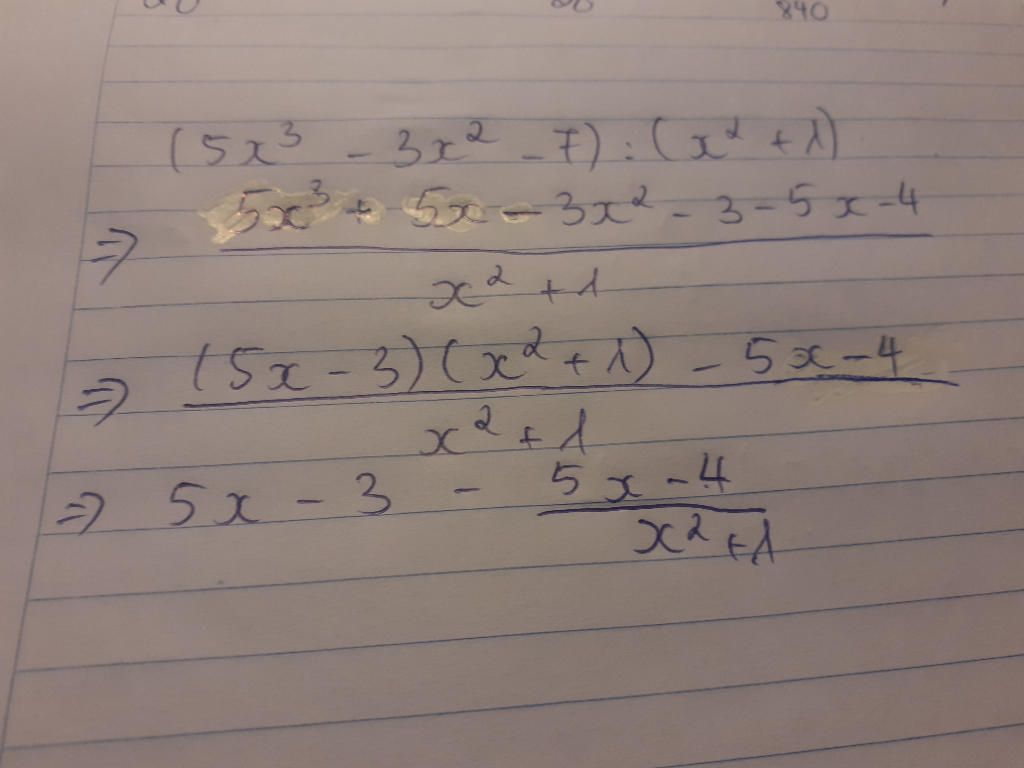 840
(5x³ - 3x² - 7) : (x² + 1)
⇒ 5x³ + 5x - 3x² - 3 - 5x - 4
x² + 1
⇒ (5x - 3)(x² + 1) - 5x - 4
x² + 1
⇒ 5x - 3 - 5x - 4
x² + 1